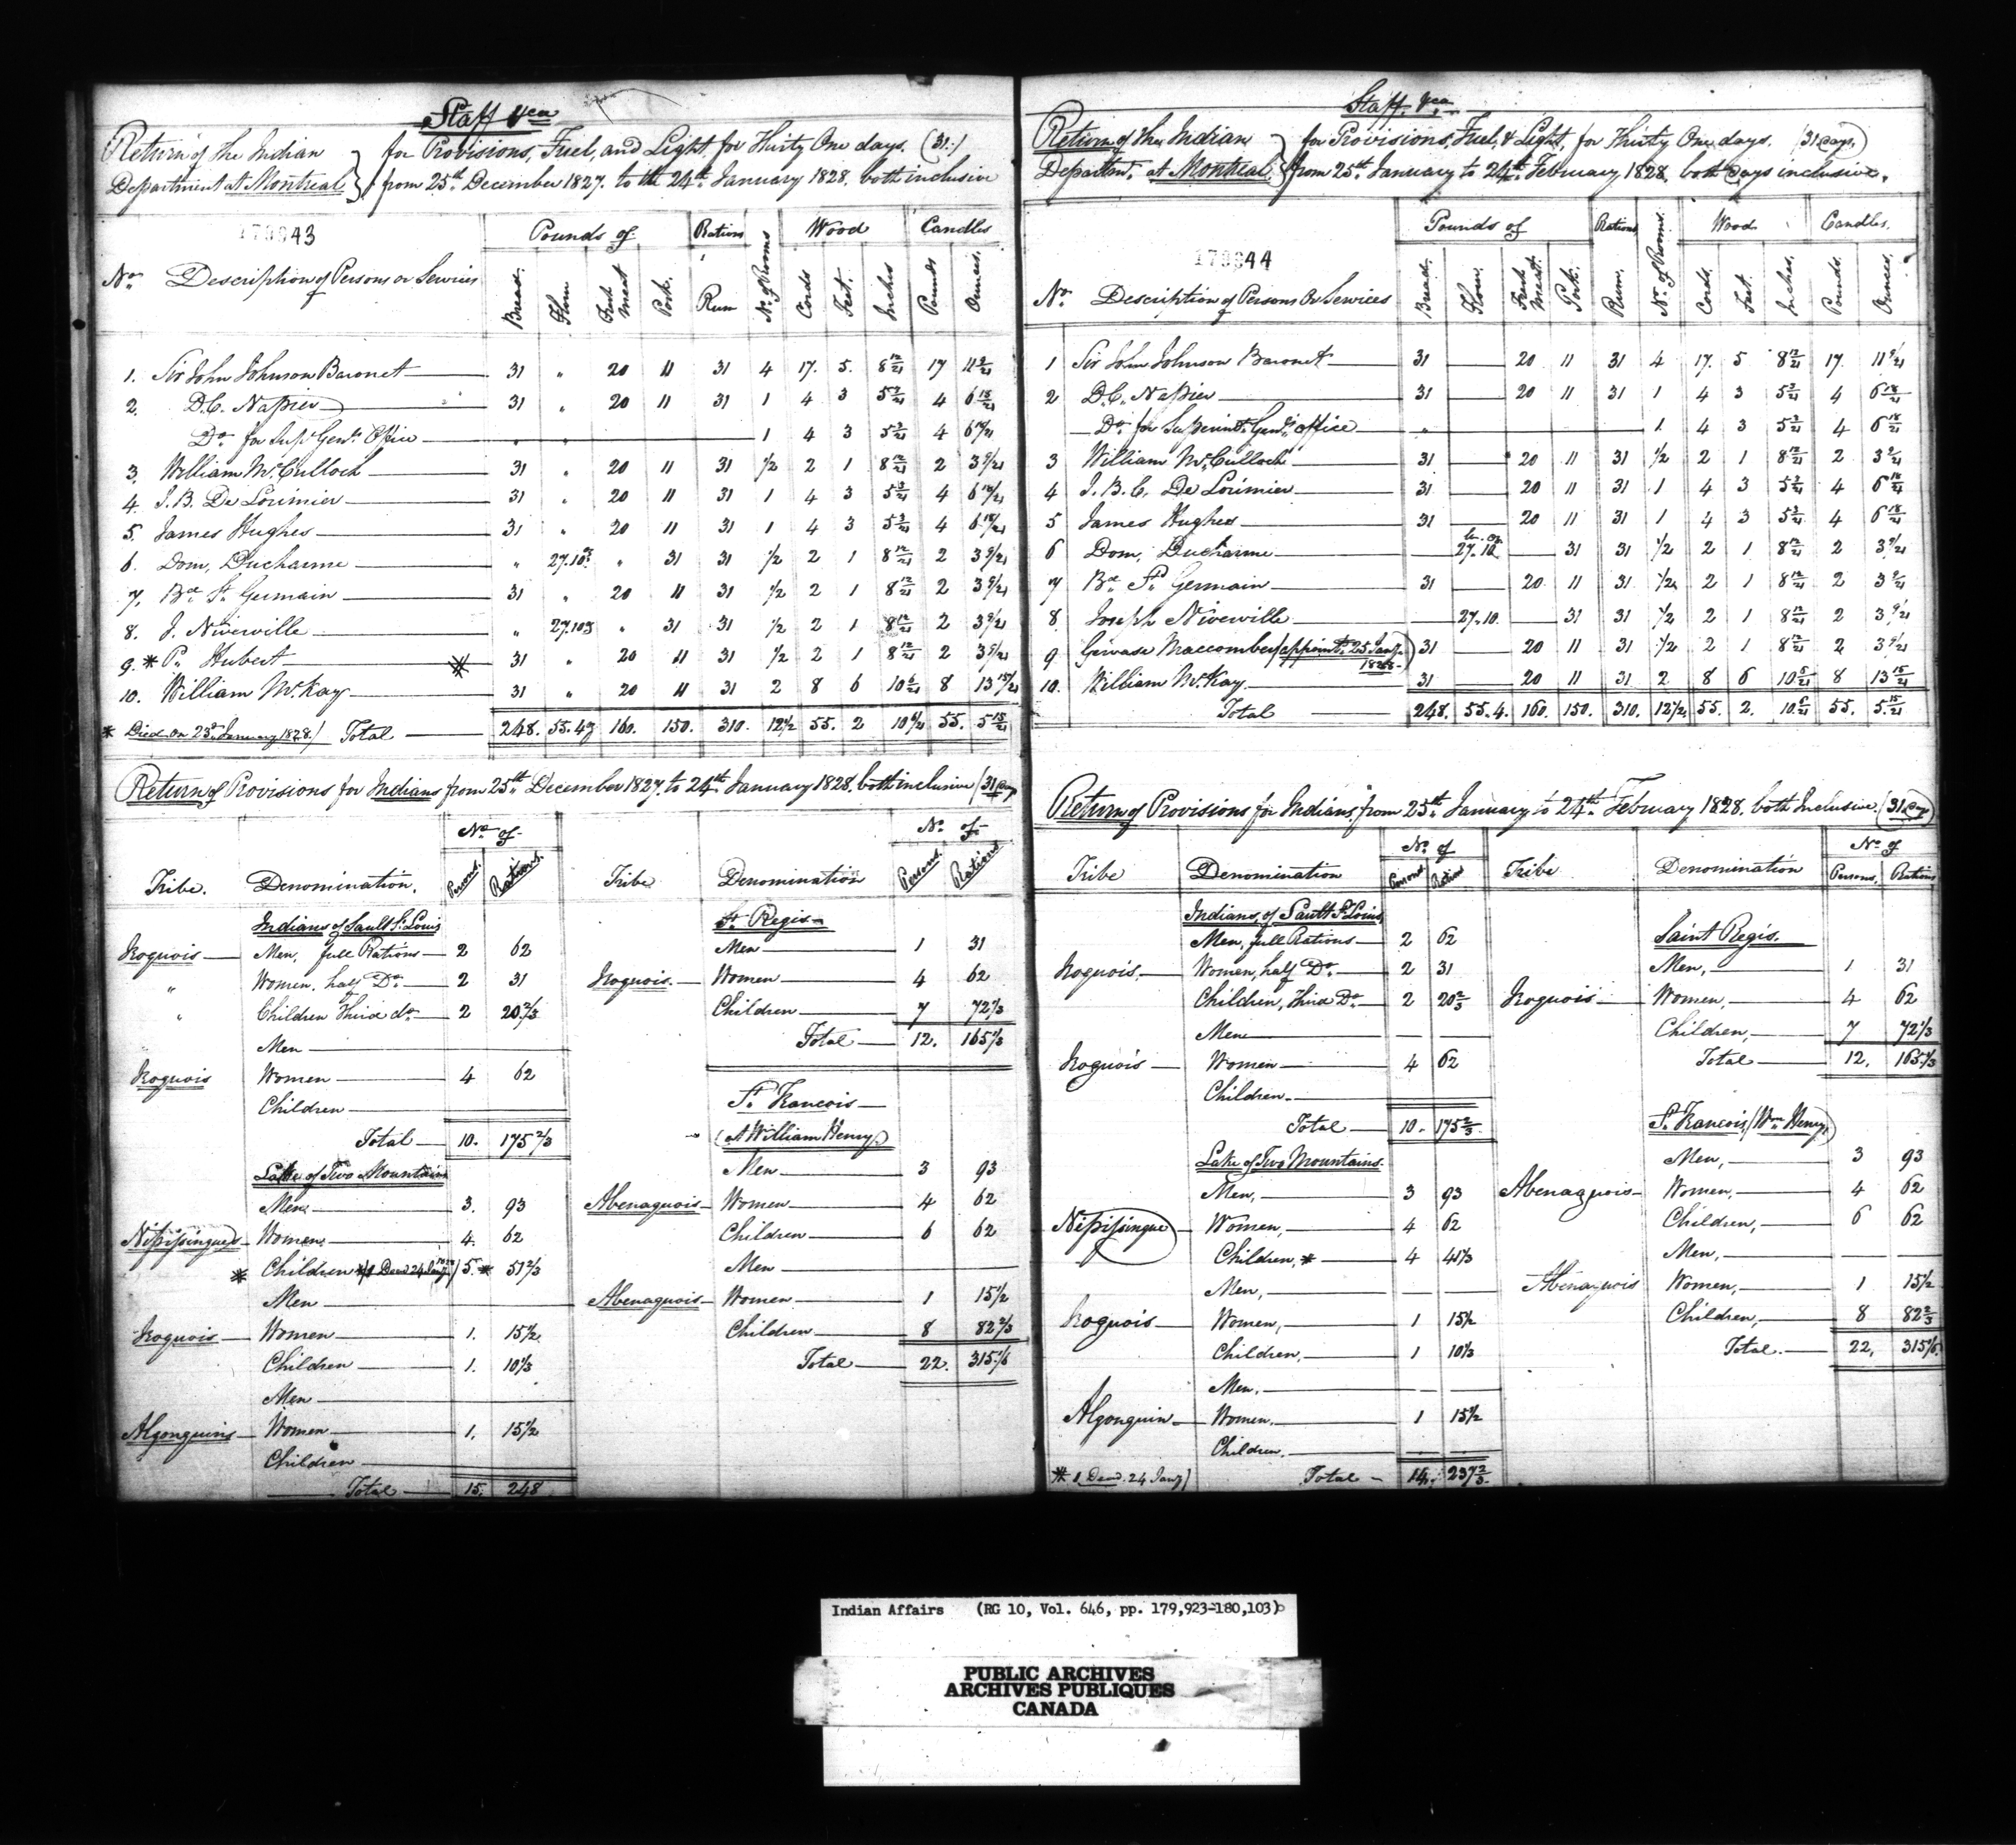 Staff &ca
Return of the Indian Department at Montreal } for Provisions, Fuel, and Light for Thirty One days. (31.)
from 25th December 1827. to the 24th January 1828. both inclusive
179943
Pounds of Rations No. of Rooms Wood Candles
No. Description of Persons or Services Bread. Flour Fresh Meat Pork. Rum Cords Feet. Inches Pounds Ounces.
1. Sir John Johnson Baronet 31 " 20 11 31 4 17. 5. 8 12/21 17 11 9/21
2. D.C. Napier 31 " 20 11 31 1 4 3 5 3/21 4 6 18/21
Do. for Supt. Genl's Office " " 1 4 3 5 3/21 4 6 18/21
3. William McCulloch 31 " 20 11 31 1/2 2 1 8 12/21 2 3 9/21
4. J.B. De Lorimier 31 " 20 11 31 1 4 3 5 3/21 4 6 18/21
5. James Hughes 31 " 20 11 31 1 4 3 5 3/21 4 6 18/21
6. Dom. Ducharme " 27.10oz " 31 31 1/2 2 1 8 12/21 2 3 9/21
7. Bte. St. Germain 31 " 20 11 31 1/2 2 1 8 12/21 2 3 9/21
8. J. Niverville " 27.10oz " 31 31 1/2 2 1 8 12/21 2 3 9/21
9. * P. Hubert * 31 " 20 11 31 1/2 2 1 8 12/21 2 3 9/21
10. William McKay 31 " 20 11 31 2 8 6 10 6/21 8 13 15/21
* Died on 23d. January 1828.) Total 248. 55.4oz 160. 150. 310. 12 1/2 55. 2 10 6/21 55. 5 15/21
Return of Provisions for Indians from 25th December 1827. to 24th January 1828. both inclusive (31 Days
No. of No. of
Tribe. Denomination. Persons. Rations. Tribe Denomination Persons. Rations.
Indians of Sault St. Louis
Iroquois Men, full Rations 2 62
" Women. half Do. 2 31
" Children Third do. 2 20 2/3
Men
Iroquois Women 4 62
Children
Total 10. 175 2/3
Lake of Two Mountains
Men 3. 93
Nipissingues Women. 4. 62
* Children */1 Dead 24 Jany. 1828) 5. * 51 2/3
Men
Iroquois Women 1. 15 1/2
Children 1. 10 1/3
Men
Algonquins Women 1. 15 1/2
Children
Total 15. 248
St. Regis
Men 1 31
Iroquois. Women 4 62
Children 7 72 1/3
Total 12. 165 1/3
St. Francois
(at William Henry)
Men 3 93
Abenaquois Women 4 62
Children 6 62
Men
Abenaquois Women 1 15 1/2
Children 8 82 2/3
Total 22. 315 1/6
Staff. &ca.
Return of the Indian Departmt. at Montreal } for Provisions, Fuel, & Light, for Thirty One days. (31 Days.)
from 25th. January to 24th. February 1828. both Days inclusive.
179944
Pounds of Rations No. of Rooms. Wood Candles.
No. Description of Persons Or Services Bread. Flour. Fresh Meat. Pork. Rum. Cords. Feet. Inches. Pounds. Ounces.
1 Sir John Johnson Baronet 31 20 11 31 4 17. 5 8 12/21 17. 11 9/21
2 D.C. Napier 31 20 11 31 1 4 3 5 3/21 4 6 18/21
Do. for Superintt. Genl's. office " 1 4 3 5 3/21 4 6 18/21
3 William McCulloch 31 20 11 31 1/2 2 1 8 12/21 2 3 9/21
4 J.B.C. De Lorimier 31 20 11 31 1 4 3 5 3/21 4 6 18/21
5 James Hughes 31 20 11 31 1 4 3 5 3/21 4 6 18/21
6 Dom. Ducharme 27.10 31 31 1/2 2 1 8 12/21 2 3 9/21
7 Bte. St. Germain 31 20 11 31 1/2 2 1 8 12/21 2 3 9/21
8. Joseph Niverville 27.10. 31 31 1/2 2 1 8 12/21 2 3 9/21
9 Gervase Maccomber (appointd. 25 Jany. 1828.) 31 20 11 31 1/2 2 1 8 12/21 2 3 9/21
10. William McKay 31 20 11 31 2 8 6 10 6/21 8 13 15/21
Total 248. 55.4. 160. 150. 310. 12 1/2 55. 2. 10 6/21 55. 5 15/21
Return of Provisions for Indians, from 25th. January to 24th. February 1828. both Inclusive. (31 Days)
No. of No. of
Tribe Denomination Persons Rations Tribe Denomination Persons, Rations
Indians of Sault St. Louis,
Men, full Rations 2 62
Iroquois. Women, half Do. 2 31
Children, Third Do. 2 20 2/3
Men
Iroquois Women 4 62
Children.
Total 10. 175 2/3
Lake of Two Mountains.
Men, 3 93
Nipissingue Women, 4 62
Children, * 4 41 1/3
Men,
Iroquois Women, 1 15 1/2
Children, 1 10 1/3
Men.
Algonquin Women. 1 15 1/2
Children.
* 1 Dead. 24 Jany.) Total 14. 237 2/3
Saint Regis.
Men, 1 31
Iroquois Women, 4 62
Children, 7 72 1/3
Total 12. 165 1/3
St. Francois, (Wm. Henry,)
Men, 3 93
Abenaquois Women, 4 62
Children, 6 62
Men,
Abenaquois Women, 1 15 1/2
Children, 8 82 2/3
Total. 22, 315 1/6
Indian Affairs (RG 10, Vol. 646, pp. 179,923-180,103)
PUBLIC ARCHIVES
ARCHIVES PUBLIQUES
CANADA